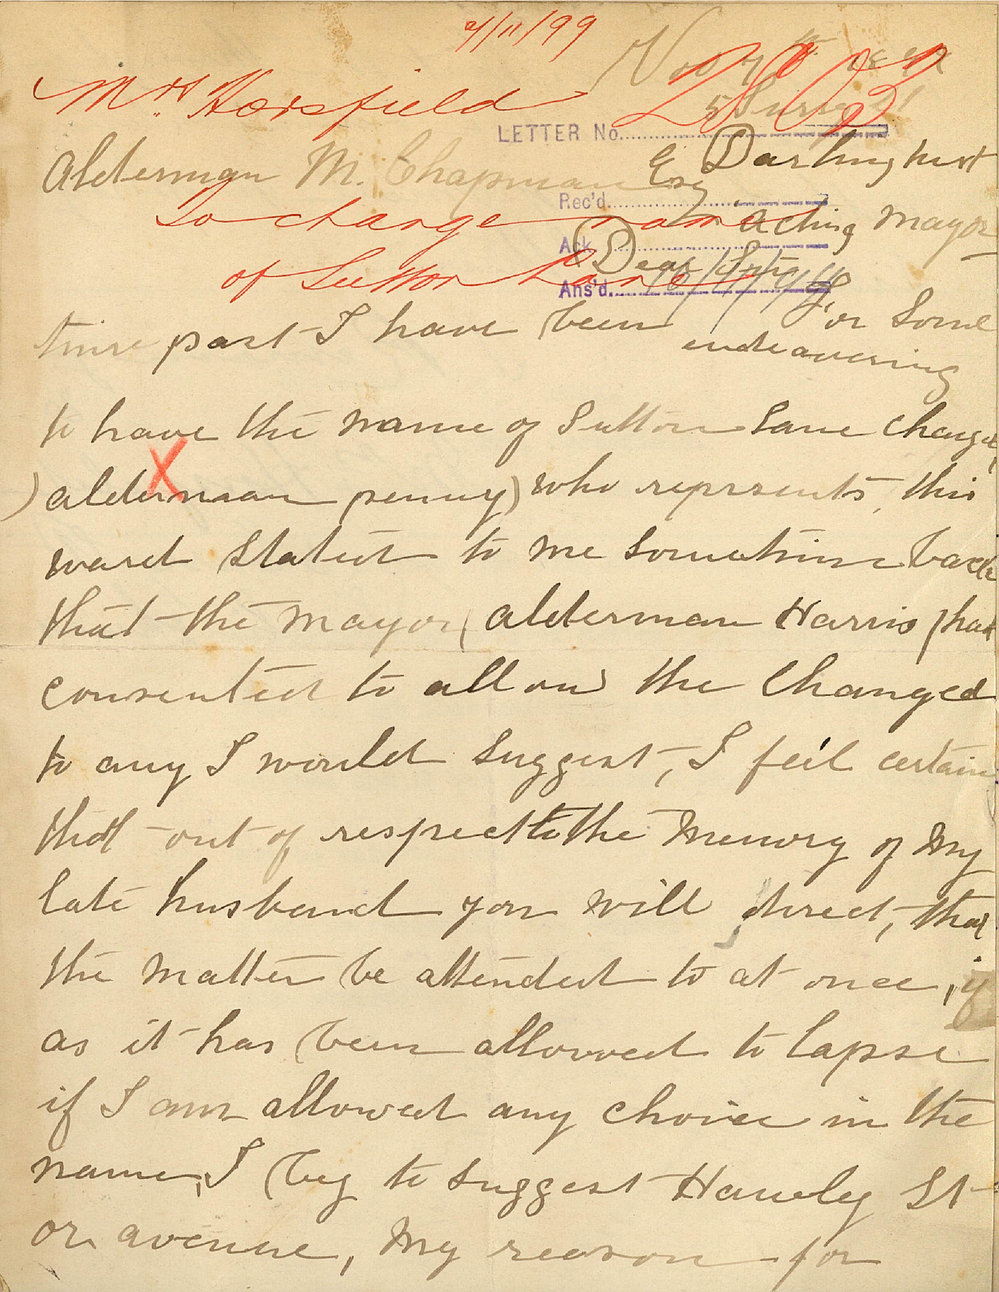 7/11/99
Nov 7th 1899
5 Surrey St
Mrs Horsfield
LETTER No.
Darlinghurst
Alderman M. Chapman Esq
Rec'd
To change name
Acting Mayor
Ack
Dear Sir
of Sutton Lane
Ans'd
For Some
time past I have been
endeavering
to have the name of Sutton Lane changed
X
(alderman penny) who reprsents this
ward Stated to me Sometime back
that the Mayor (alderman Harris) had
consented to allow the Changed
to any I would Suggest, I feel certain
that out of respect to the Memory of My
late husband you will direct, that
the Matter be attended to at once,
as it has been allowed to lapse
if I am allowed any choice in the
name, I beg to Suggest Hawely St
or avenue, My reason for